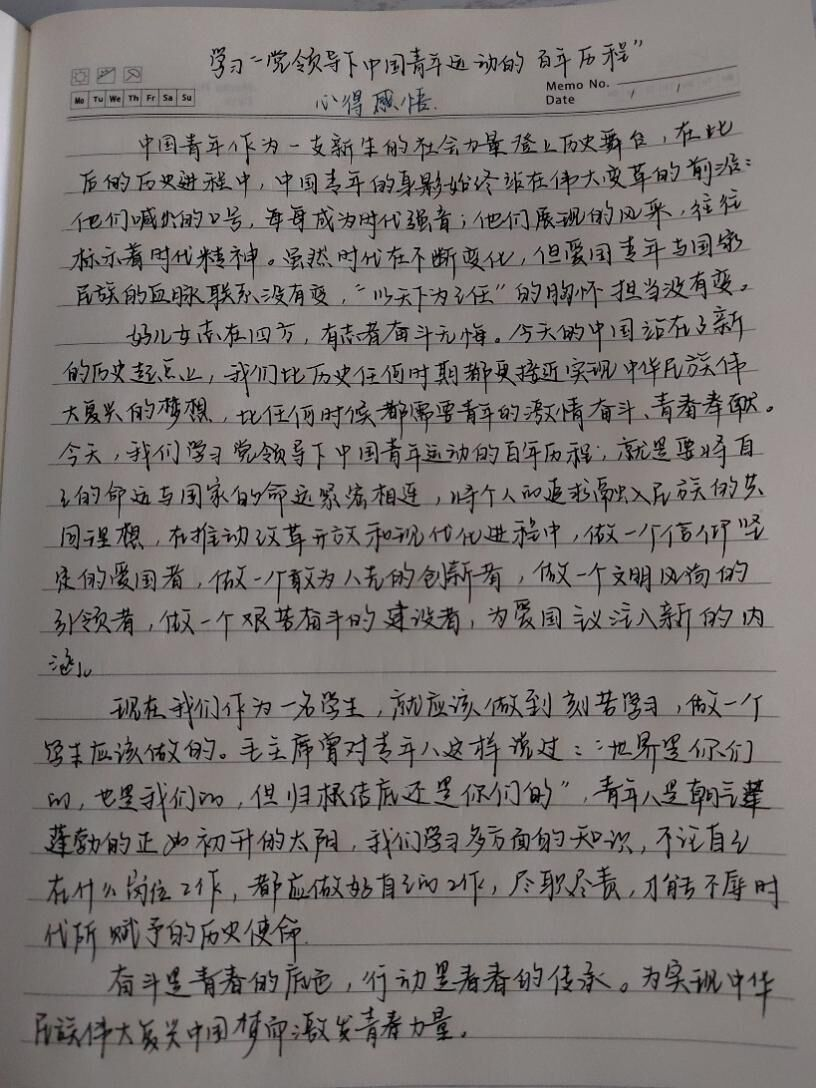 学习“党领导下中国青年运动的百年历程”
心得感悟.
Mo Tu We Th Fr Sa Su
Memo No.
Date / /
中国青年作为一支新生的社会力量登上历史舞台，在此
后的历史进程中，中国青年的身影始终站在伟大变革的前沿：
他们喊出的口号，每每成为时代强音；他们展现的风采，往往
标示着时代精神。虽然时代在不断变化，但爱国青年与国家
民族的血脉联系没有变，“以天下为己任”的胸怀担当没有变。
好儿女志在四方，有志者奋斗无悔。今天的中国站在了新
的历史起点上，我们比历史任何时期都更接近实现中华民族伟
大复兴的梦想，比任何时候都需要青年的激情奋斗、青春奉献。
今天，我们学习党领导下中国青年运动的百年历程；就是要将自
己的命运与国家的命运紧密相连，将个人的追求融入民族的共
同理想，在推动改革开放和现代化进程中，做一个信仰坚
定的爱国者，做一个敢为人先的创新者，做一个文明风尚的
引领者，做一个艰苦奋斗的建设者，为爱国主议注入新的内
涵。
现在我们作为一名学生，就应该做到刻苦学习，做一个
学生应该做的。毛主席曾对青年人这样说过：“世界是你们
的，也是我们的，但归根结底还是你们的”，青年人是朝气蓬
蓬勃的正如初升的太阳，我们学习多方面的知识，不论自己
在什么岗位工作，都应做好自己的工作，尽职尽责，才能不辱时
代所赋予的历史使命.
奋斗是青春的底色，行动是青春的传承。为实现中华
民族伟大复兴中国梦而激发青春力量。